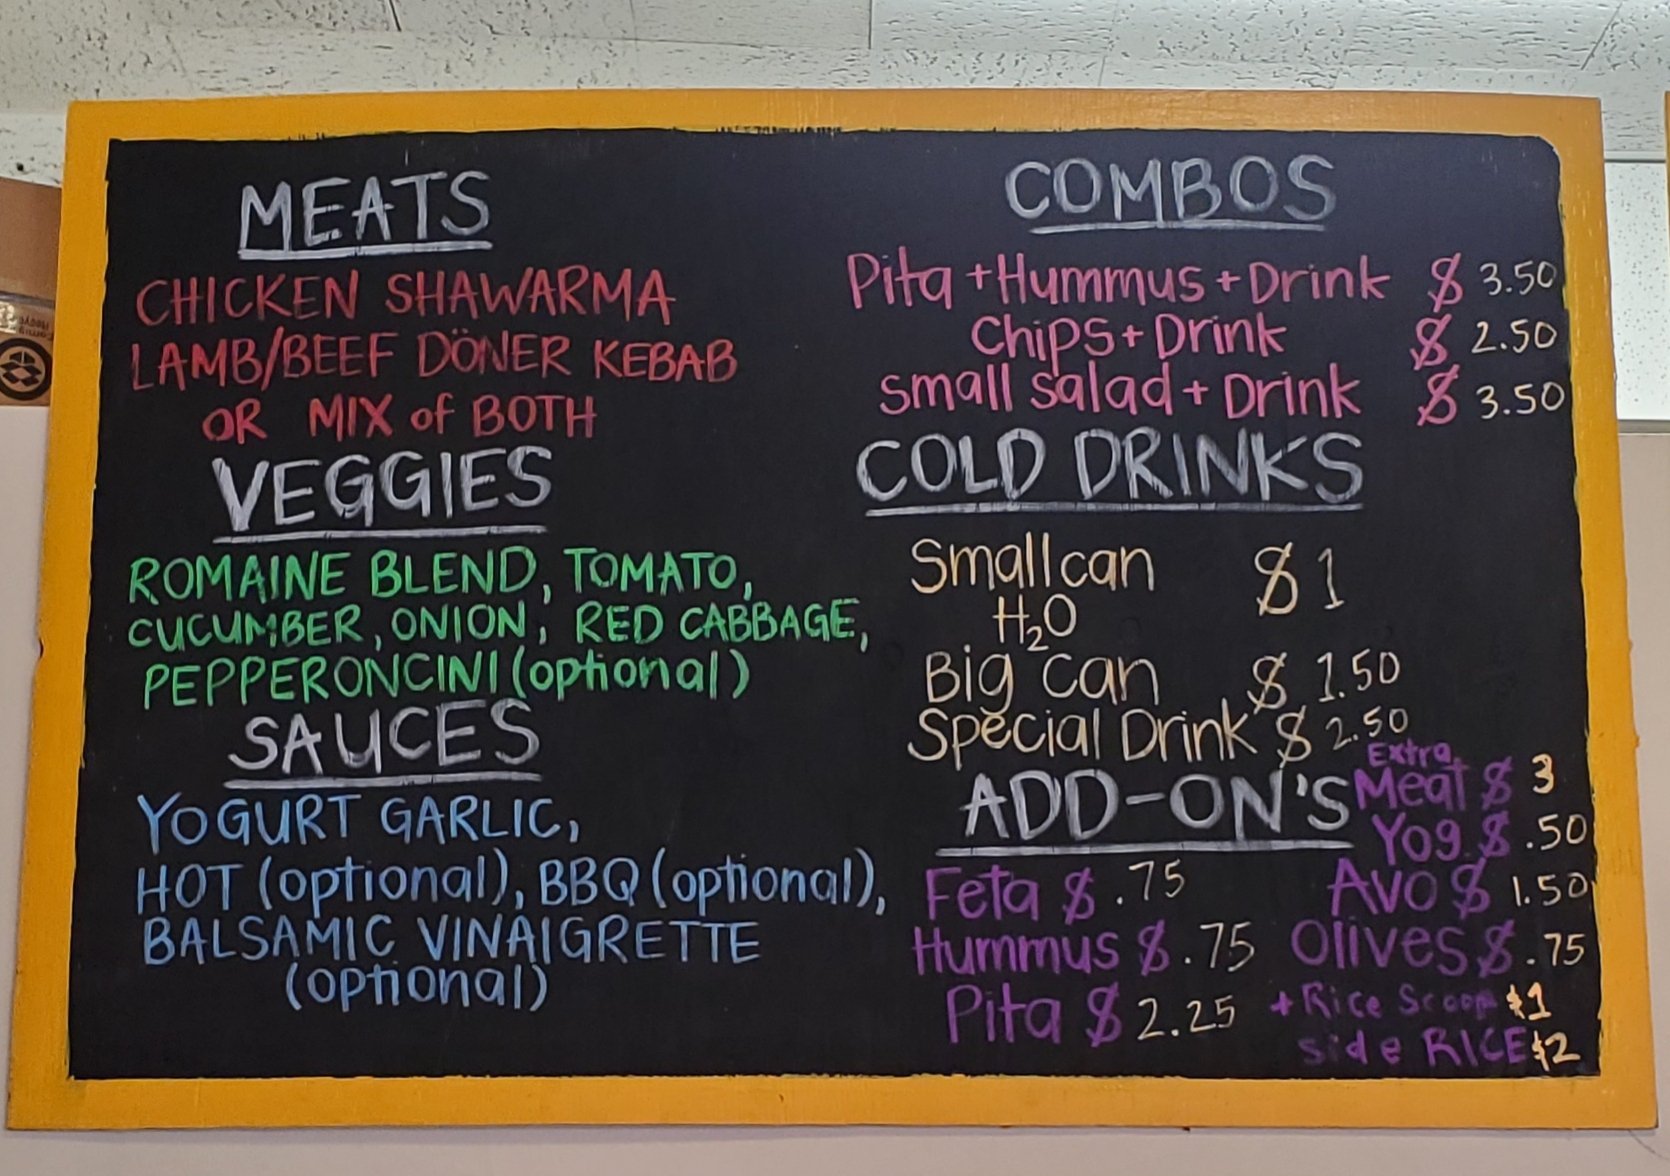 MEATS
CHICKEN SHAWARMA
LAMB/BEEF DÖNER KEBAB
OR MIX of BOTH
VEGGIES
ROMAINE BLEND, TOMATO,
CUCUMBER, ONION, RED CABBAGE,
PEPPERONCINI (optional)
SAUCES
YOGURT GARLIC,
HOT (optional), BBQ (optional),
BALSAMIC VINAIGRETTE
(optional)
COMBOS
Pita + Hummus + Drink $ 3.50
Chips + Drink $ 2.50
Small Salad + Drink $ 3.50
COLD DRINKS
Small can $1
H₂O
Big can $ 1.50
Special Drink $ 2.50
ADD-ON'S
Extra
Meat $ 3
Yog. $ .50
Feta $ .75 Avo $ 1.50
Hummus $ .75 Olives $ .75
Pita $ 2.25 + Rice Scoop $1
side RICE $2